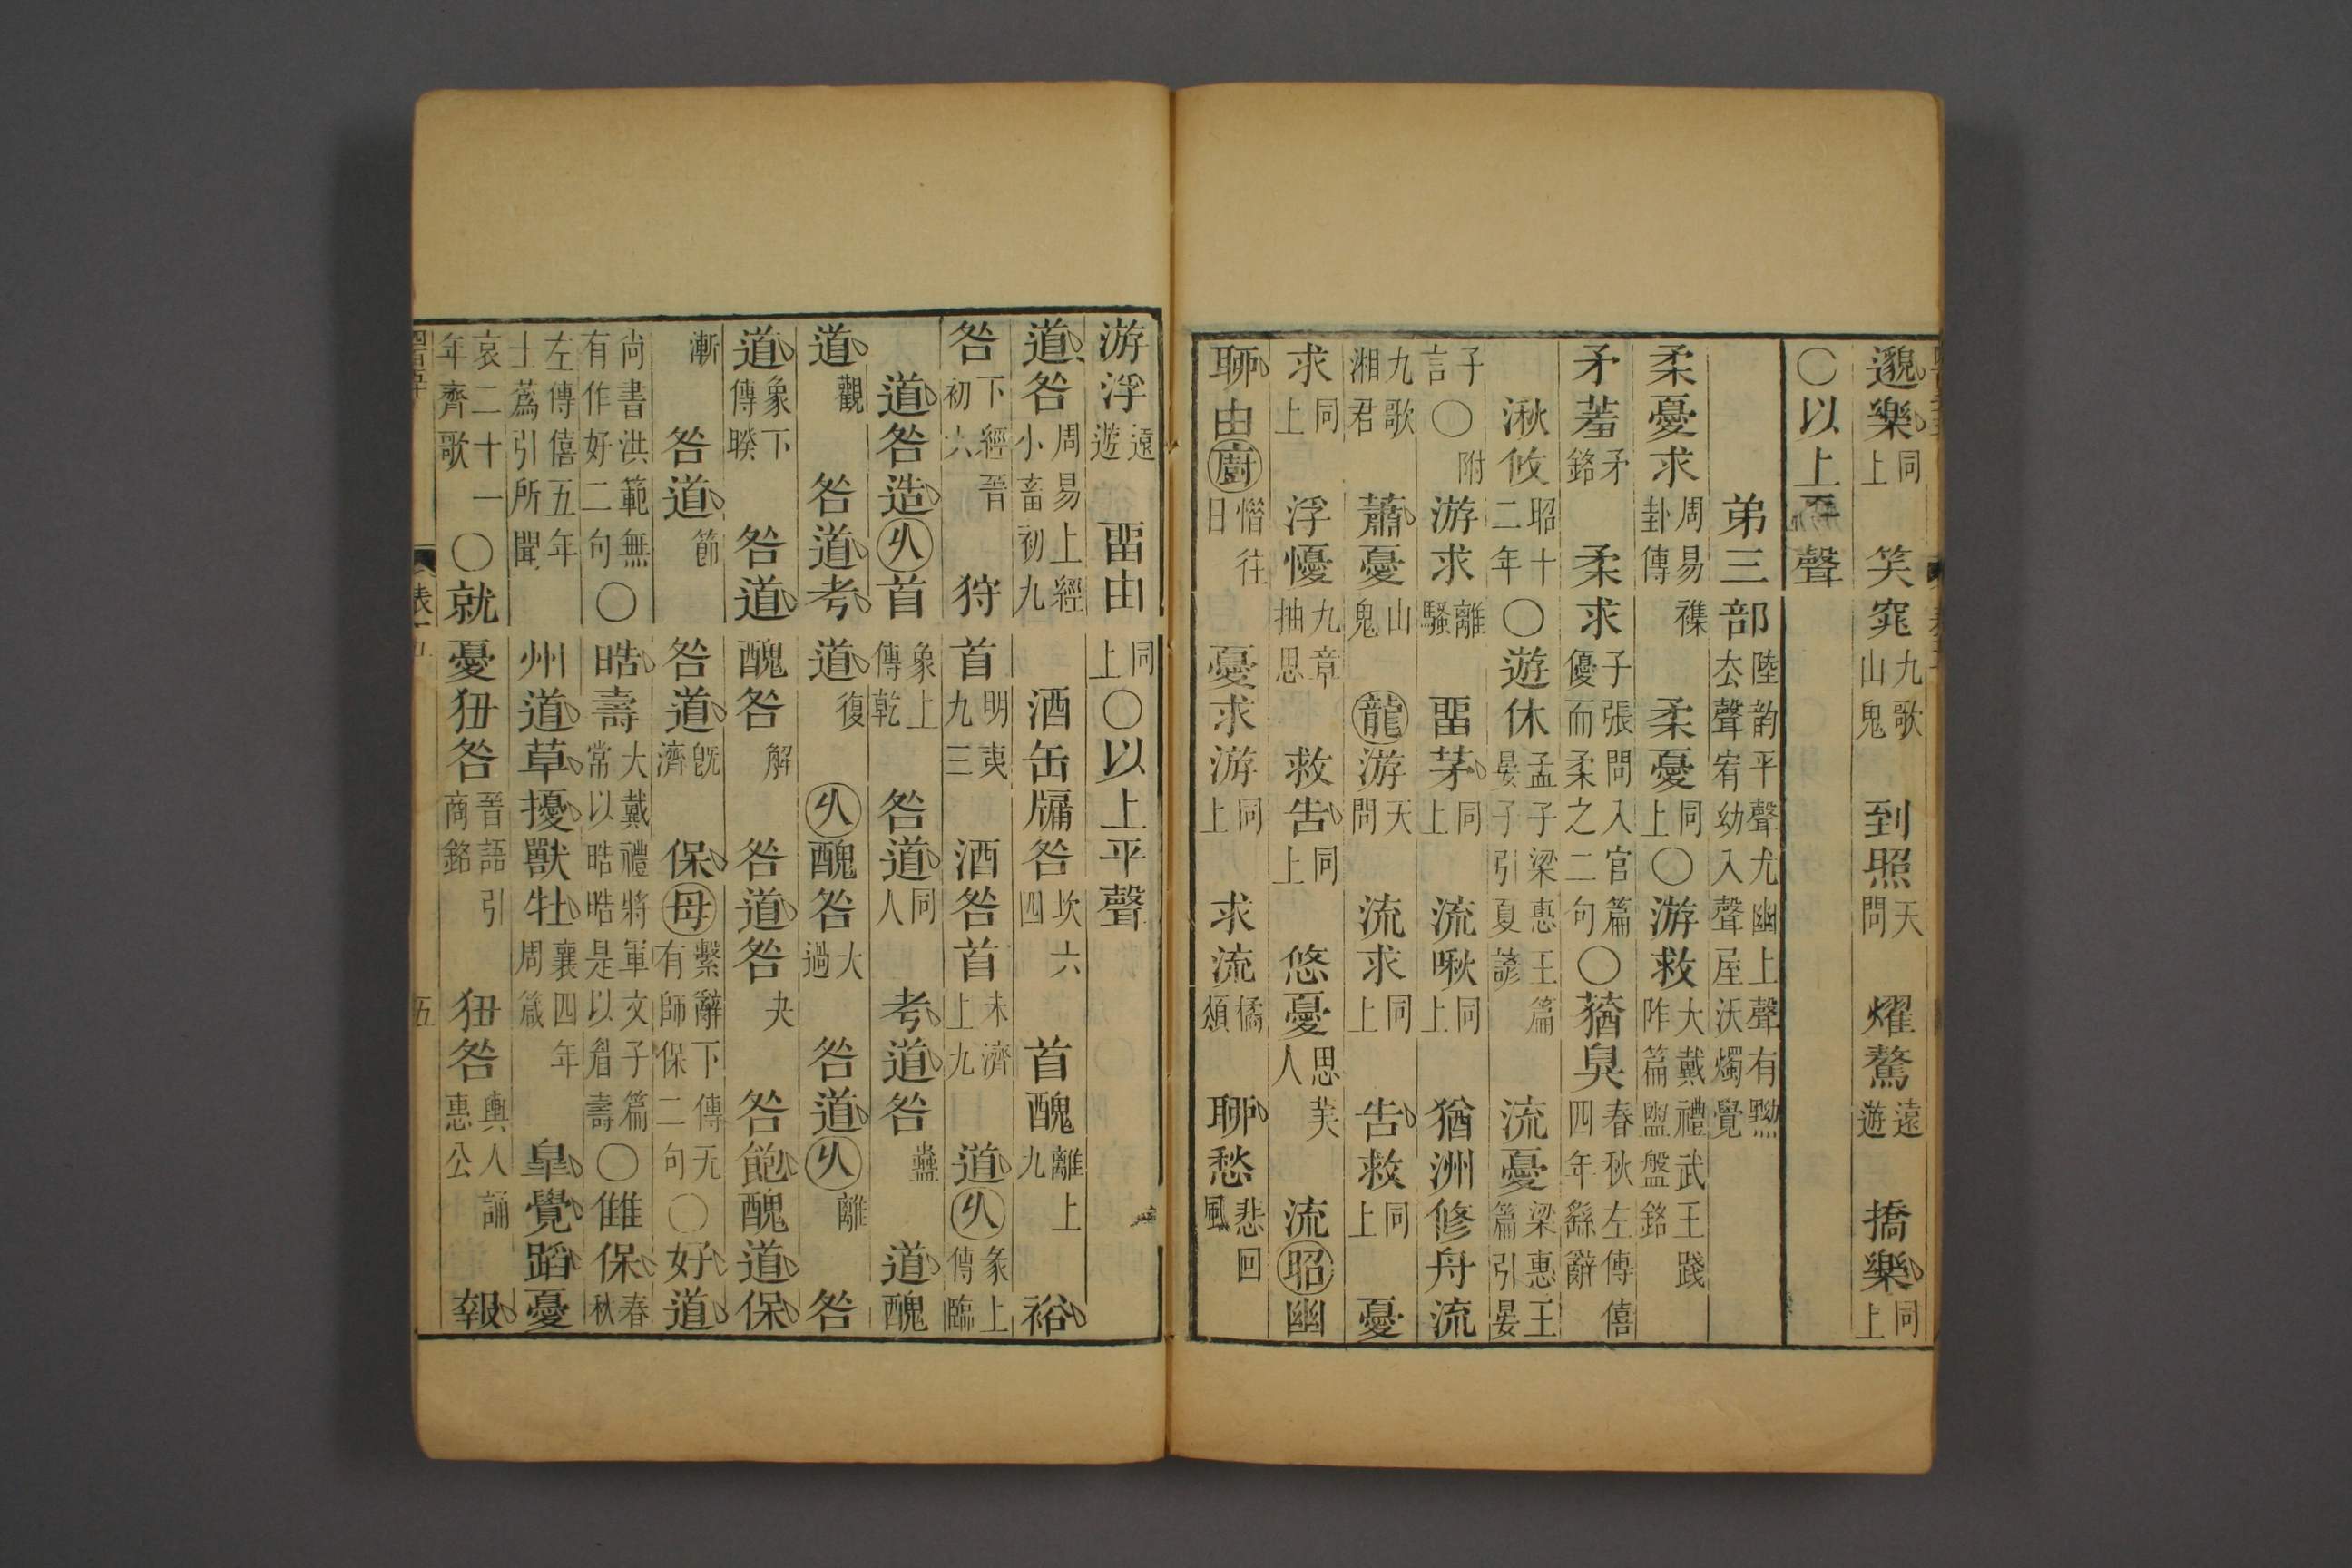 邈樂同上　笑窕九歌山鬼　到照天問　燿驁遠遊　撟樂同上
〇以上去聲
弟三部陸韵平聲尤幽上聲有黝去聲宥幼入聲屋沃燭覺
柔憂求周易襍卦傳　柔憂同上〇游救大戴禮武王踐阼篇盥盤銘
矛羞矛銘　柔求子張問入官篇優而柔之二句〇蕕臭春秋左傳僖四年繇辭
湫攸昭十二年〇遊休孟子梁惠王篇晏子引夏諺　流憂梁惠王篇引晏
子言〇附　游求離騷　畱茅同上　流啾同上　猶洲修舟流
九歌湘君　蕭憂山鬼　龍游天問　流求同上　告救同上　憂
求同上　浮懮九章抽思　救告同上　悠憂思美人　流昭幽
聊由廚惜往日　憂求游同上　求流橘頌　聊愁悲回風
游浮遠遊　畱由同上〇以上平聲
道咎周易上經小畜初九　酒缶牖咎坎六四　首醜離上九　裕
咎下經晉初六　狩首明夷九三　酒咎首未濟上九　道久彖上傳臨
道咎造久首象上傳乾　咎道同人　考道咎蠱　道醜
道觀　咎道考道復　久醜咎大過　咎道久離　咎
道象下傳睽　咎道醜咎解　咎道咎夬　咎飽醜道保
漸　咎道節　咎道既濟　保母繫辭下傳无有師保二句〇好道
尚書洪範無有作好二句〇晧壽大戴禮將軍文子篇常以晧晧是以眉壽〇讎保春秋
左傳僖五年士蔿引所聞　州道草擾獸牡襄四年周箴　皐覺蹈憂
哀二十一年齊歌〇就憂狃咎晉語引商銘　狃咎輿人誦惠公　報